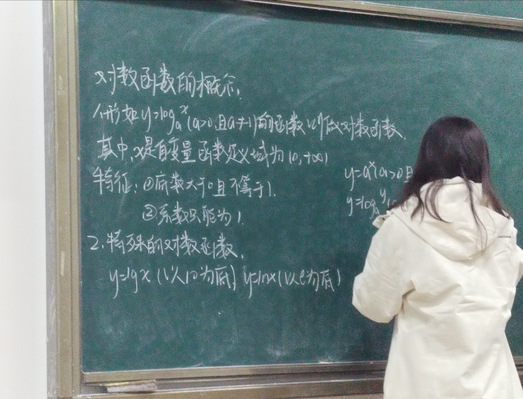 对数函数的概念:
1.形如y=logₐx(a>0,且a≠1)的函数叫做对数函数,
其中,x是自变量,函数定义域为(0,+∞)
特征:①底数大于0且不等于1.
②系数只能为1
2.特殊的对数函数,
y=lgx(以10为底) y=lnx(以e为底)
y=aˣ(a>0且
y=logₐ